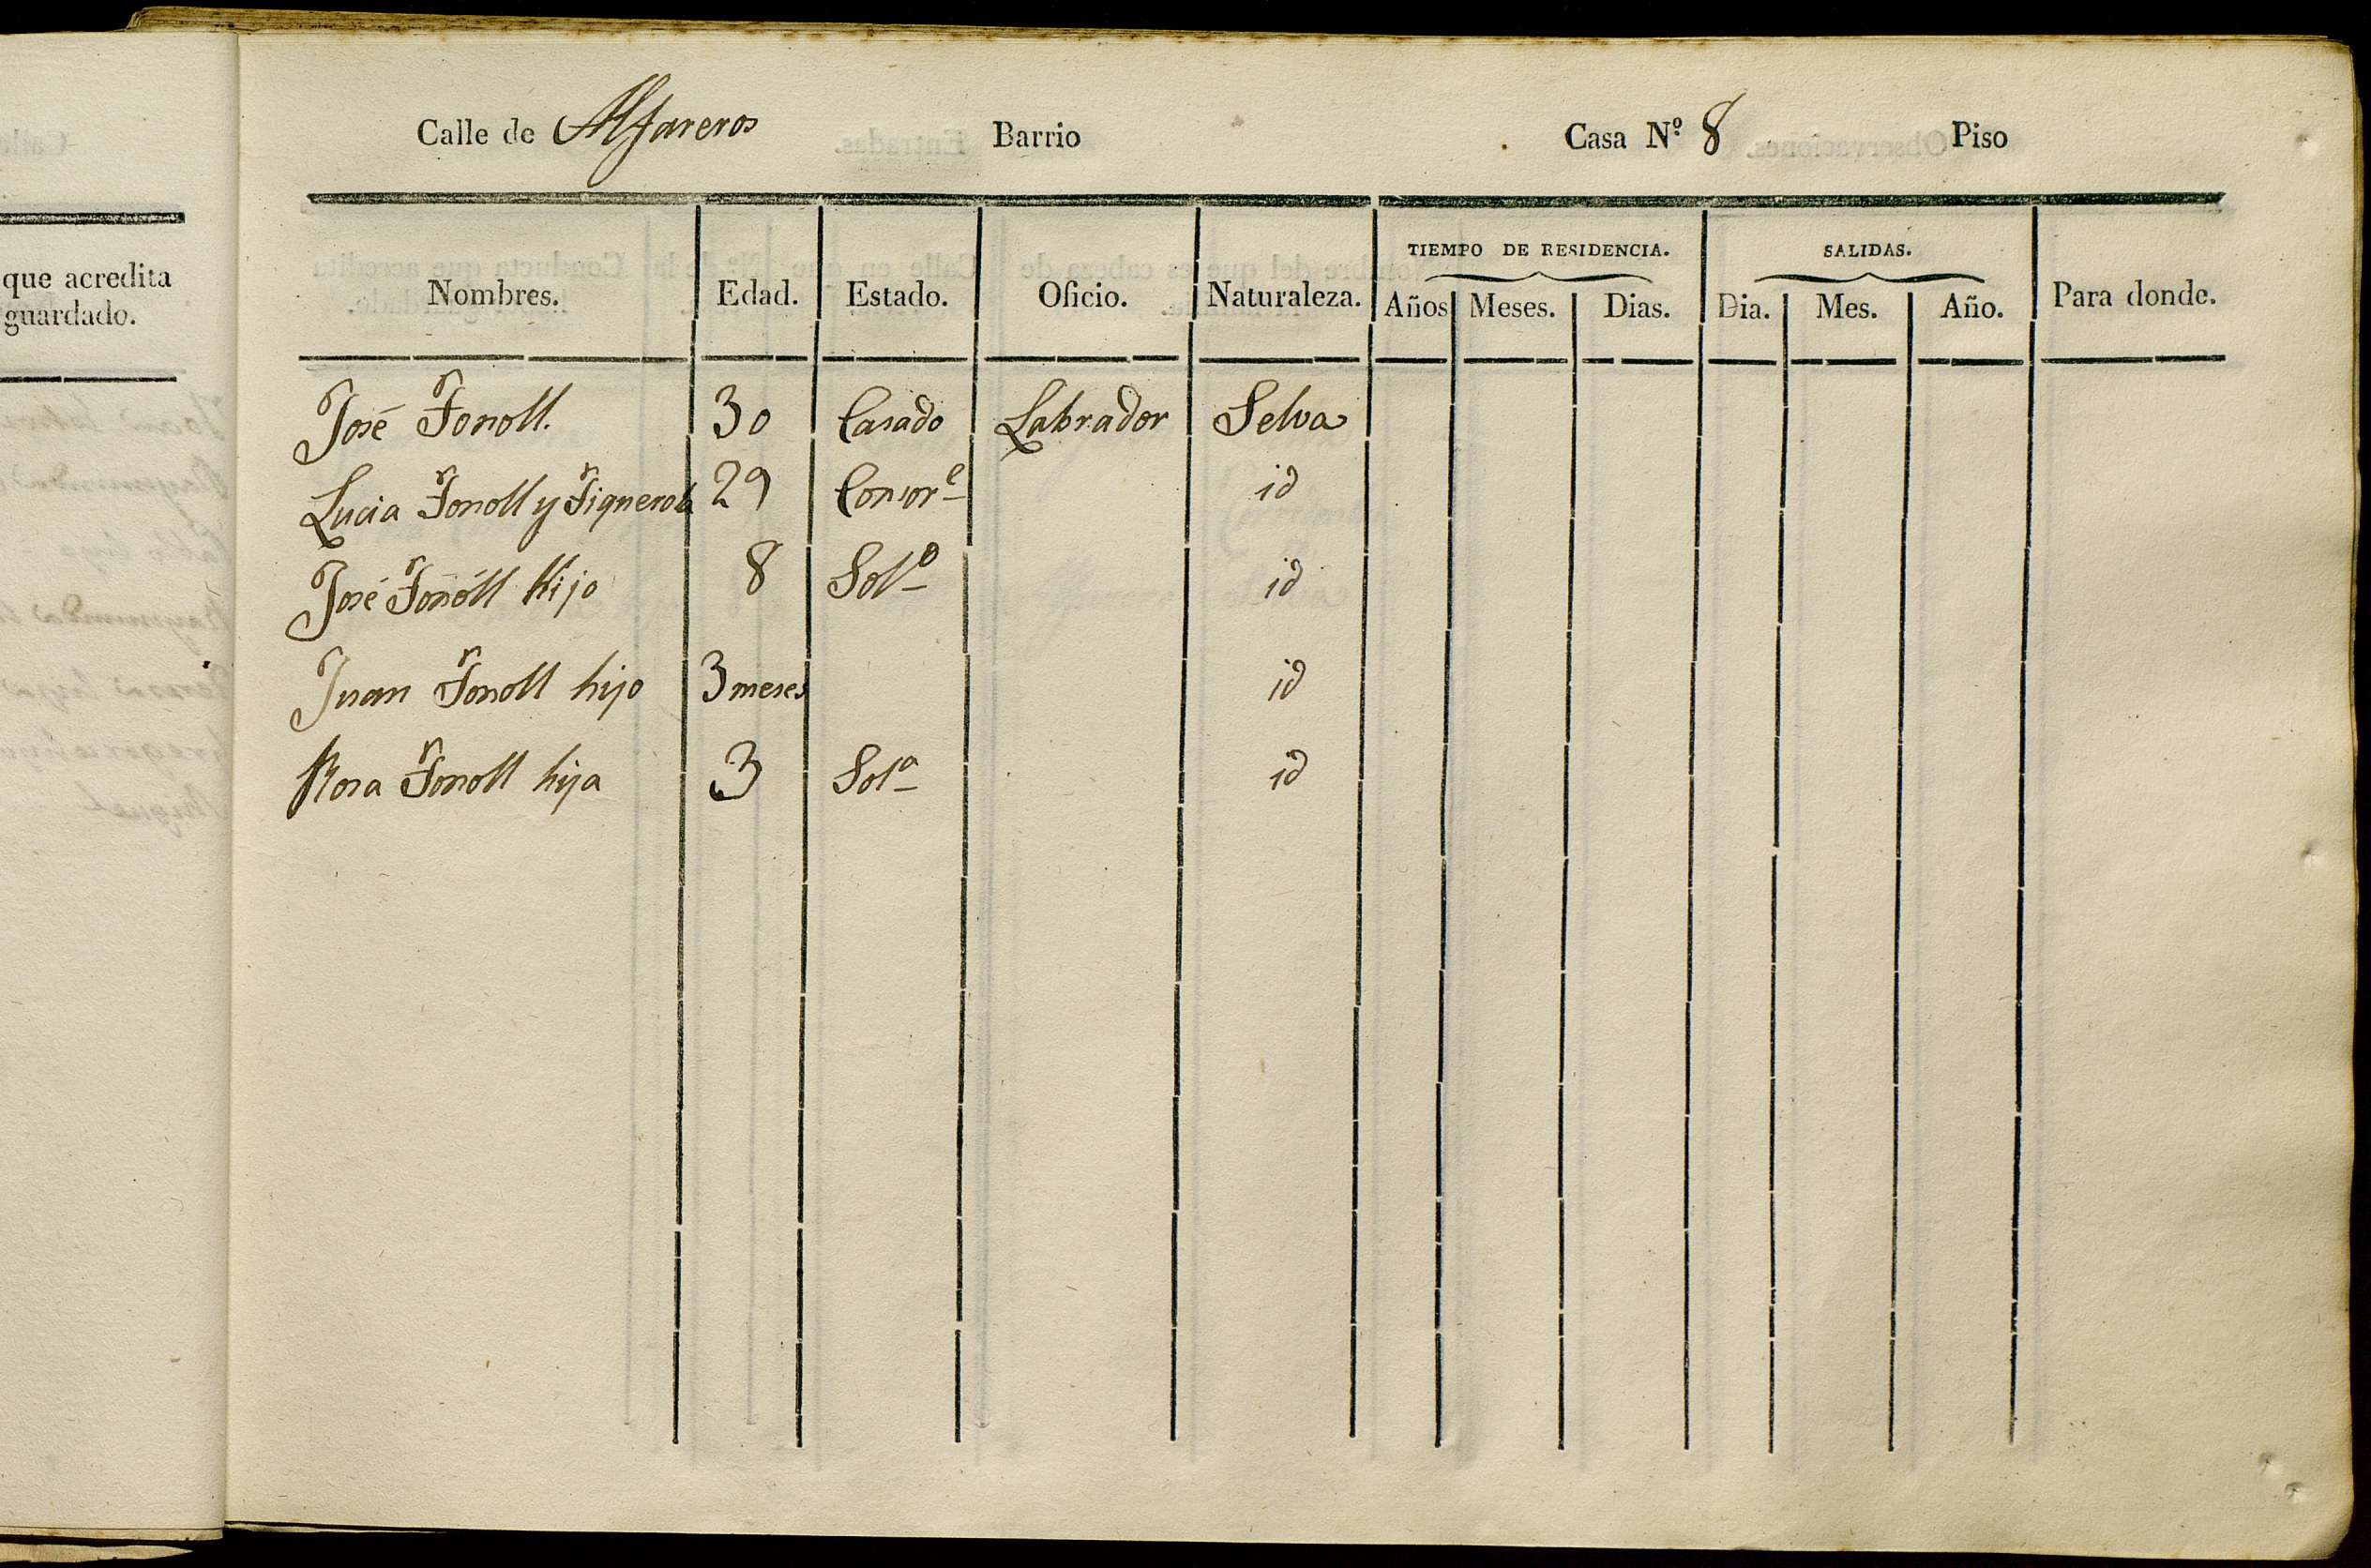 que acredita
guardado.
Calle de Alfareros Barrio Casa Nº 8 Piso
TIEMPO DE RESIDENCIA. SALIDAS.
Nombres. Edad. Estado. Oficio. Naturaleza. Años Meses. Dias. Dia. Mes. Año. Para donde.
José Fonoll. 30 Casado Labrador Selva
Lucia Fonoll y Figuerola 29 Consorᵉ id
José Fonoll hijo 8 Solº id
Juan Fonoll hijo 3 meses id
Rosa Fonoll hija 3 Solª id